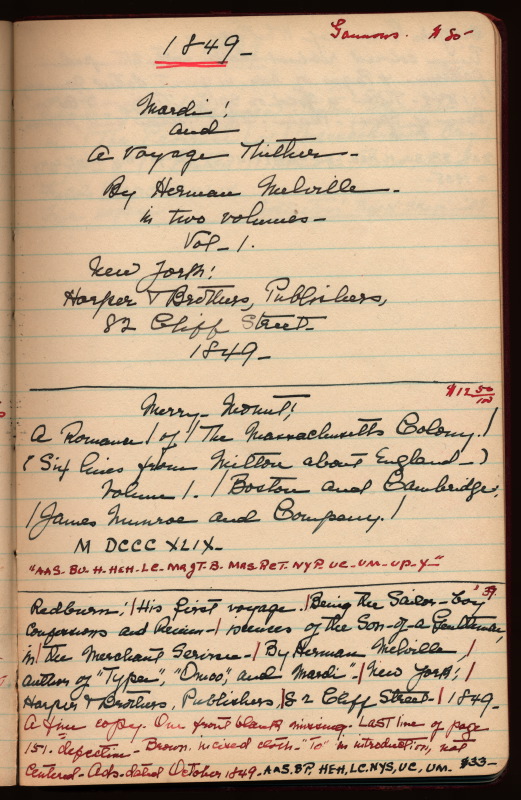 1849-
$ 80-
Mardi!
and
A Voyage Thither-
By Herman Melville-
in two volumes-
Vol-1.
New York:
Harper & Brothers, Publishers,
82 Cliff Street-
1849-
$12 50/100
Merry-Mount;
A Romance / of / The Massachusetts Colony. /
(Six lines from Milton about England-)
Volume 1. / Boston and Cambridge,
/ James Munroe and Company. /
M DCCC XLIX-
Redburn: / His first voyage. / Being the Sailor-boy
Confessions and Remin- / iscences of the Son-of-a Gentleman,
in / the Merchant Service- / By Herman Melville, /
author of "Typee", "Omoo", and Mardi"- / New York: /
Harper & Brothers, Publishers, / 82 Cliff Street- / 1849-
A fine copy. One front blank missing. Last line of page
151- defective- Brown incised cloth- "To" in introduction, not
Centered- Ads. dated October 1849- AAS, BP, HEH, LC, NYS, UC, UM- $33-